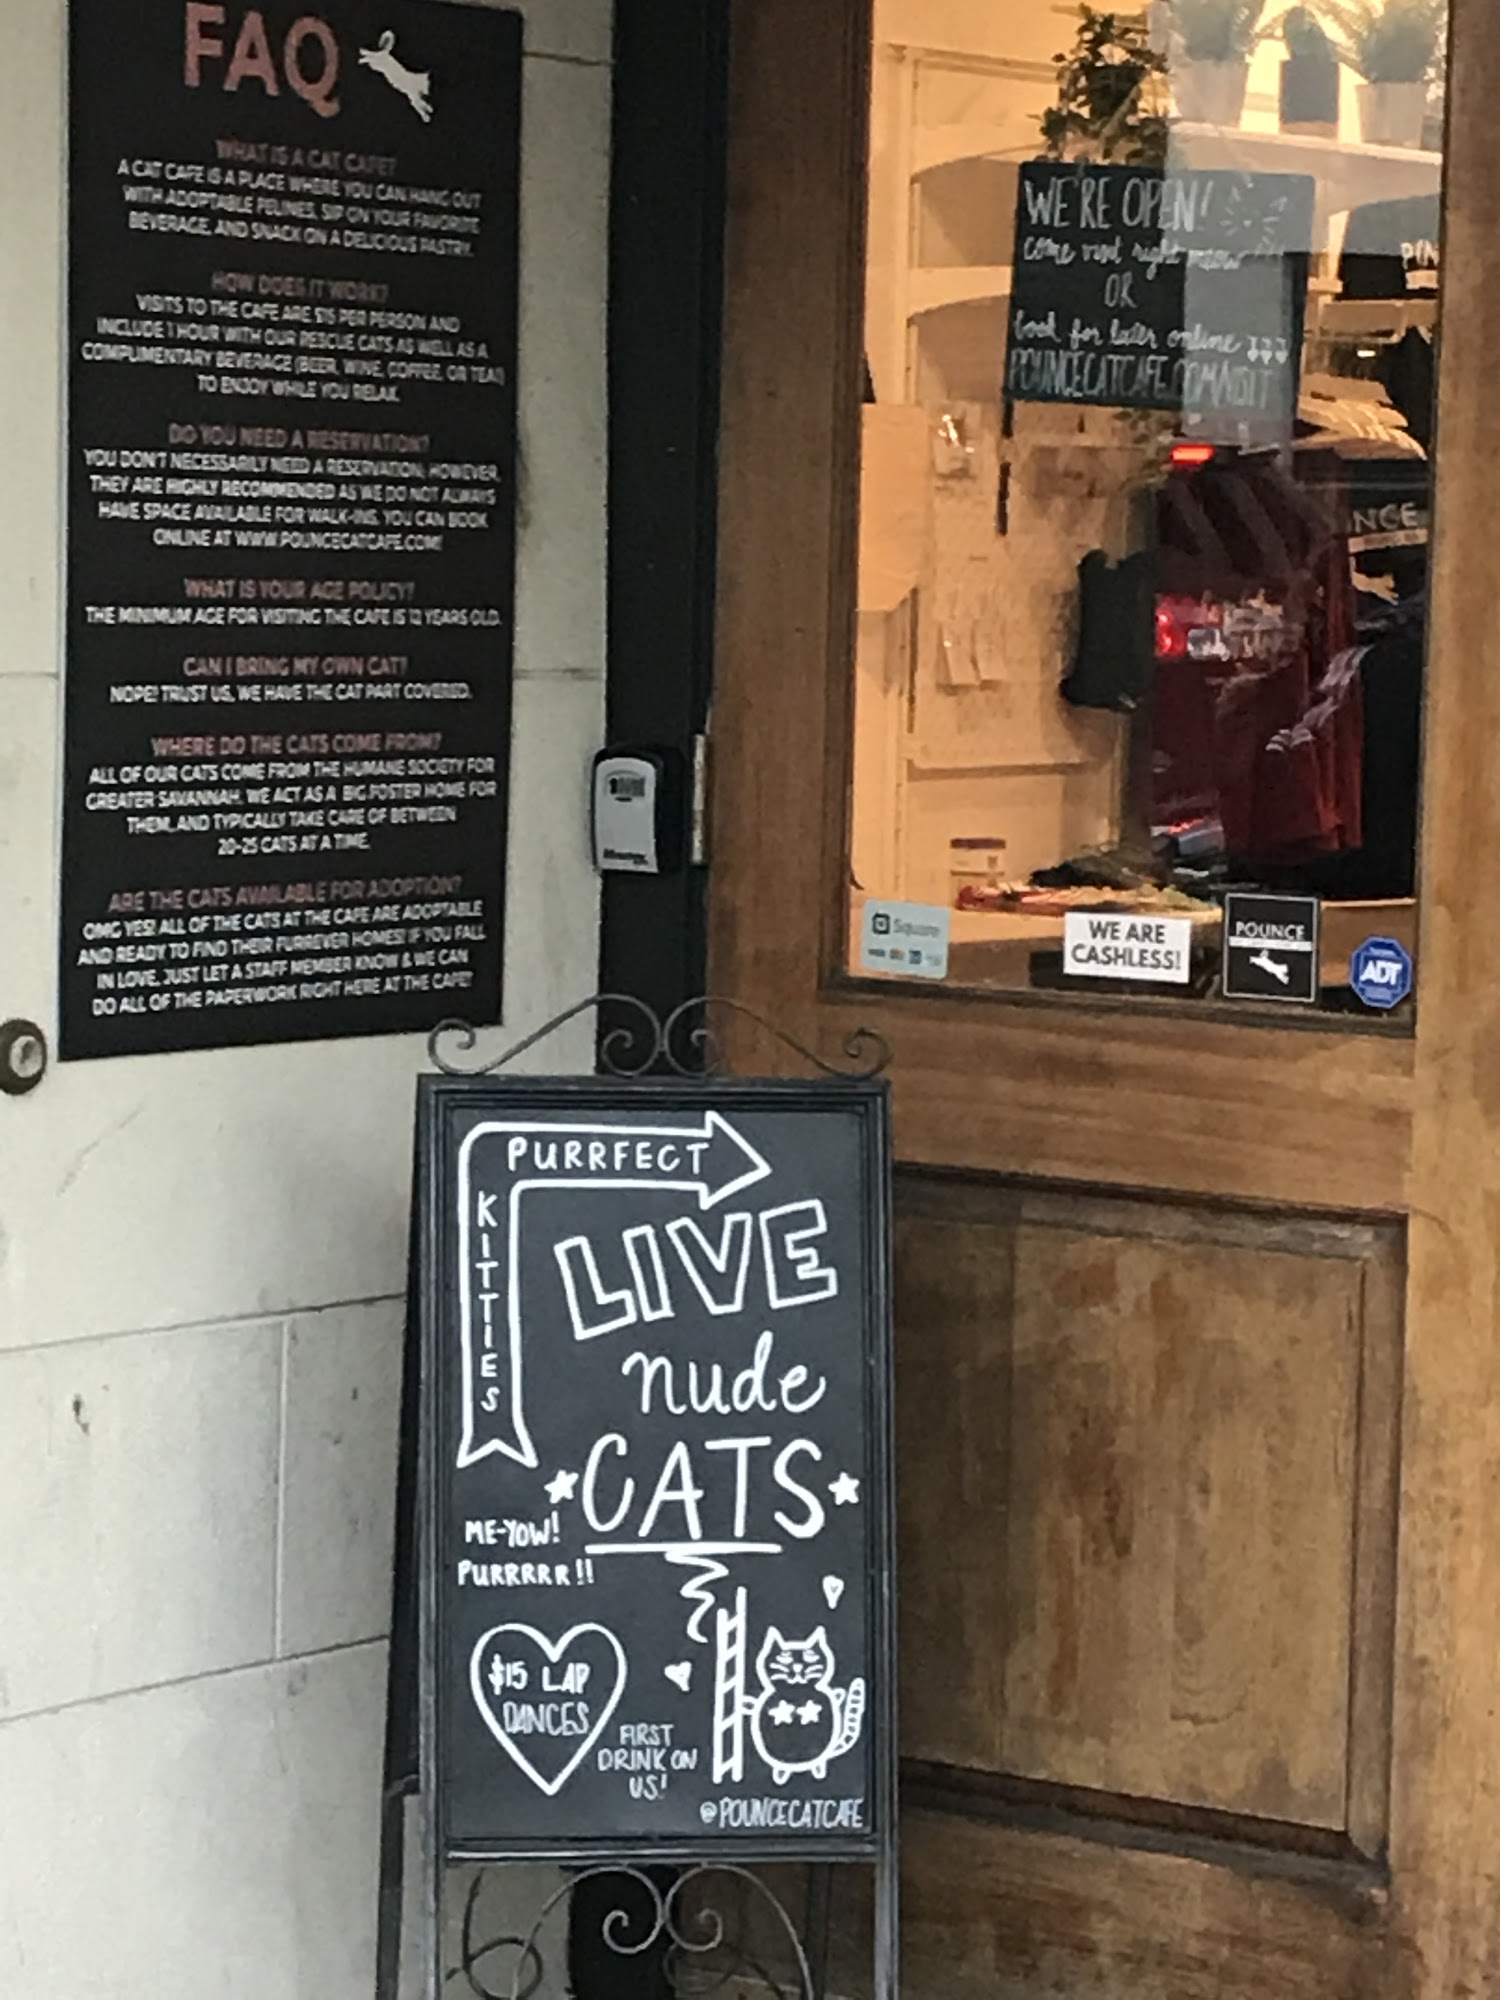 FAQ
WHAT IS A CAT CAFE?
A CAT CAFE IS A PLACE WHERE YOU CAN HANG OUT
WITH ADOPTABLE FELINES, SIP ON YOUR FAVORITE
BEVERAGE, AND SNACK ON A DELICIOUS PASTRY.
HOW DOES IT WORK?
VISITS TO THE CAFE ARE $15 PER PERSON AND
INCLUDE 1 HOUR WITH OUR RESCUE CATS AS WELL AS A
COMPLIMENTARY BEVERAGE (BEER, WINE, COFFEE, OR TEA!)
TO ENJOY WHILE YOU RELAX.
DO YOU NEED A RESERVATION?
YOU DON'T NECESSARILY NEED A RESERVATION; HOWEVER,
THEY ARE HIGHLY RECOMMENDED AS WE DO NOT ALWAYS
HAVE SPACE AVAILABLE FOR WALK-INS. YOU CAN BOOK
ONLINE AT WWW.POUNCECATCAFE.COM!
WHAT IS YOUR AGE POLICY?
THE MINIMUM AGE FOR VISITING THE CAFE IS 12 YEARS OLD.
CAN I BRING MY OWN CAT?
NOPE! TRUST US, WE HAVE THE CAT PART COVERED.
WHERE DO THE CATS COME FROM?
ALL OF OUR CATS COME FROM THE HUMANE SOCIETY FOR
GREATER SAVANNAH. WE ACT AS A BIG FOSTER HOME FOR
THEM, AND TYPICALLY TAKE CARE OF BETWEEN
20-25 CATS AT A TIME.
ARE THE CATS AVAILABLE FOR ADOPTION?
OMG YES! ALL OF THE CATS AT THE CAFE ARE ADOPTABLE
AND READY TO FIND THEIR FURREVER HOMES! IF YOU FALL
IN LOVE, JUST LET A STAFF MEMBER KNOW & WE CAN
DO ALL OF THE PAPERWORK RIGHT HERE AT THE CAFE!
WE'RE OPEN!
come visit right meow
OR
book for later online
POUNCECATCAFE.COM/VISIT
NCE
Square
WE ARE
CASHLESS!
POUNCE
ADT
PURRFECT
KITTIES
LIVE
nude
CATS
ME-YOW!
PURRRRR!!
$15 LAP
DANCES
FIRST
DRINK ON
US!
@POUNCECATCAFE